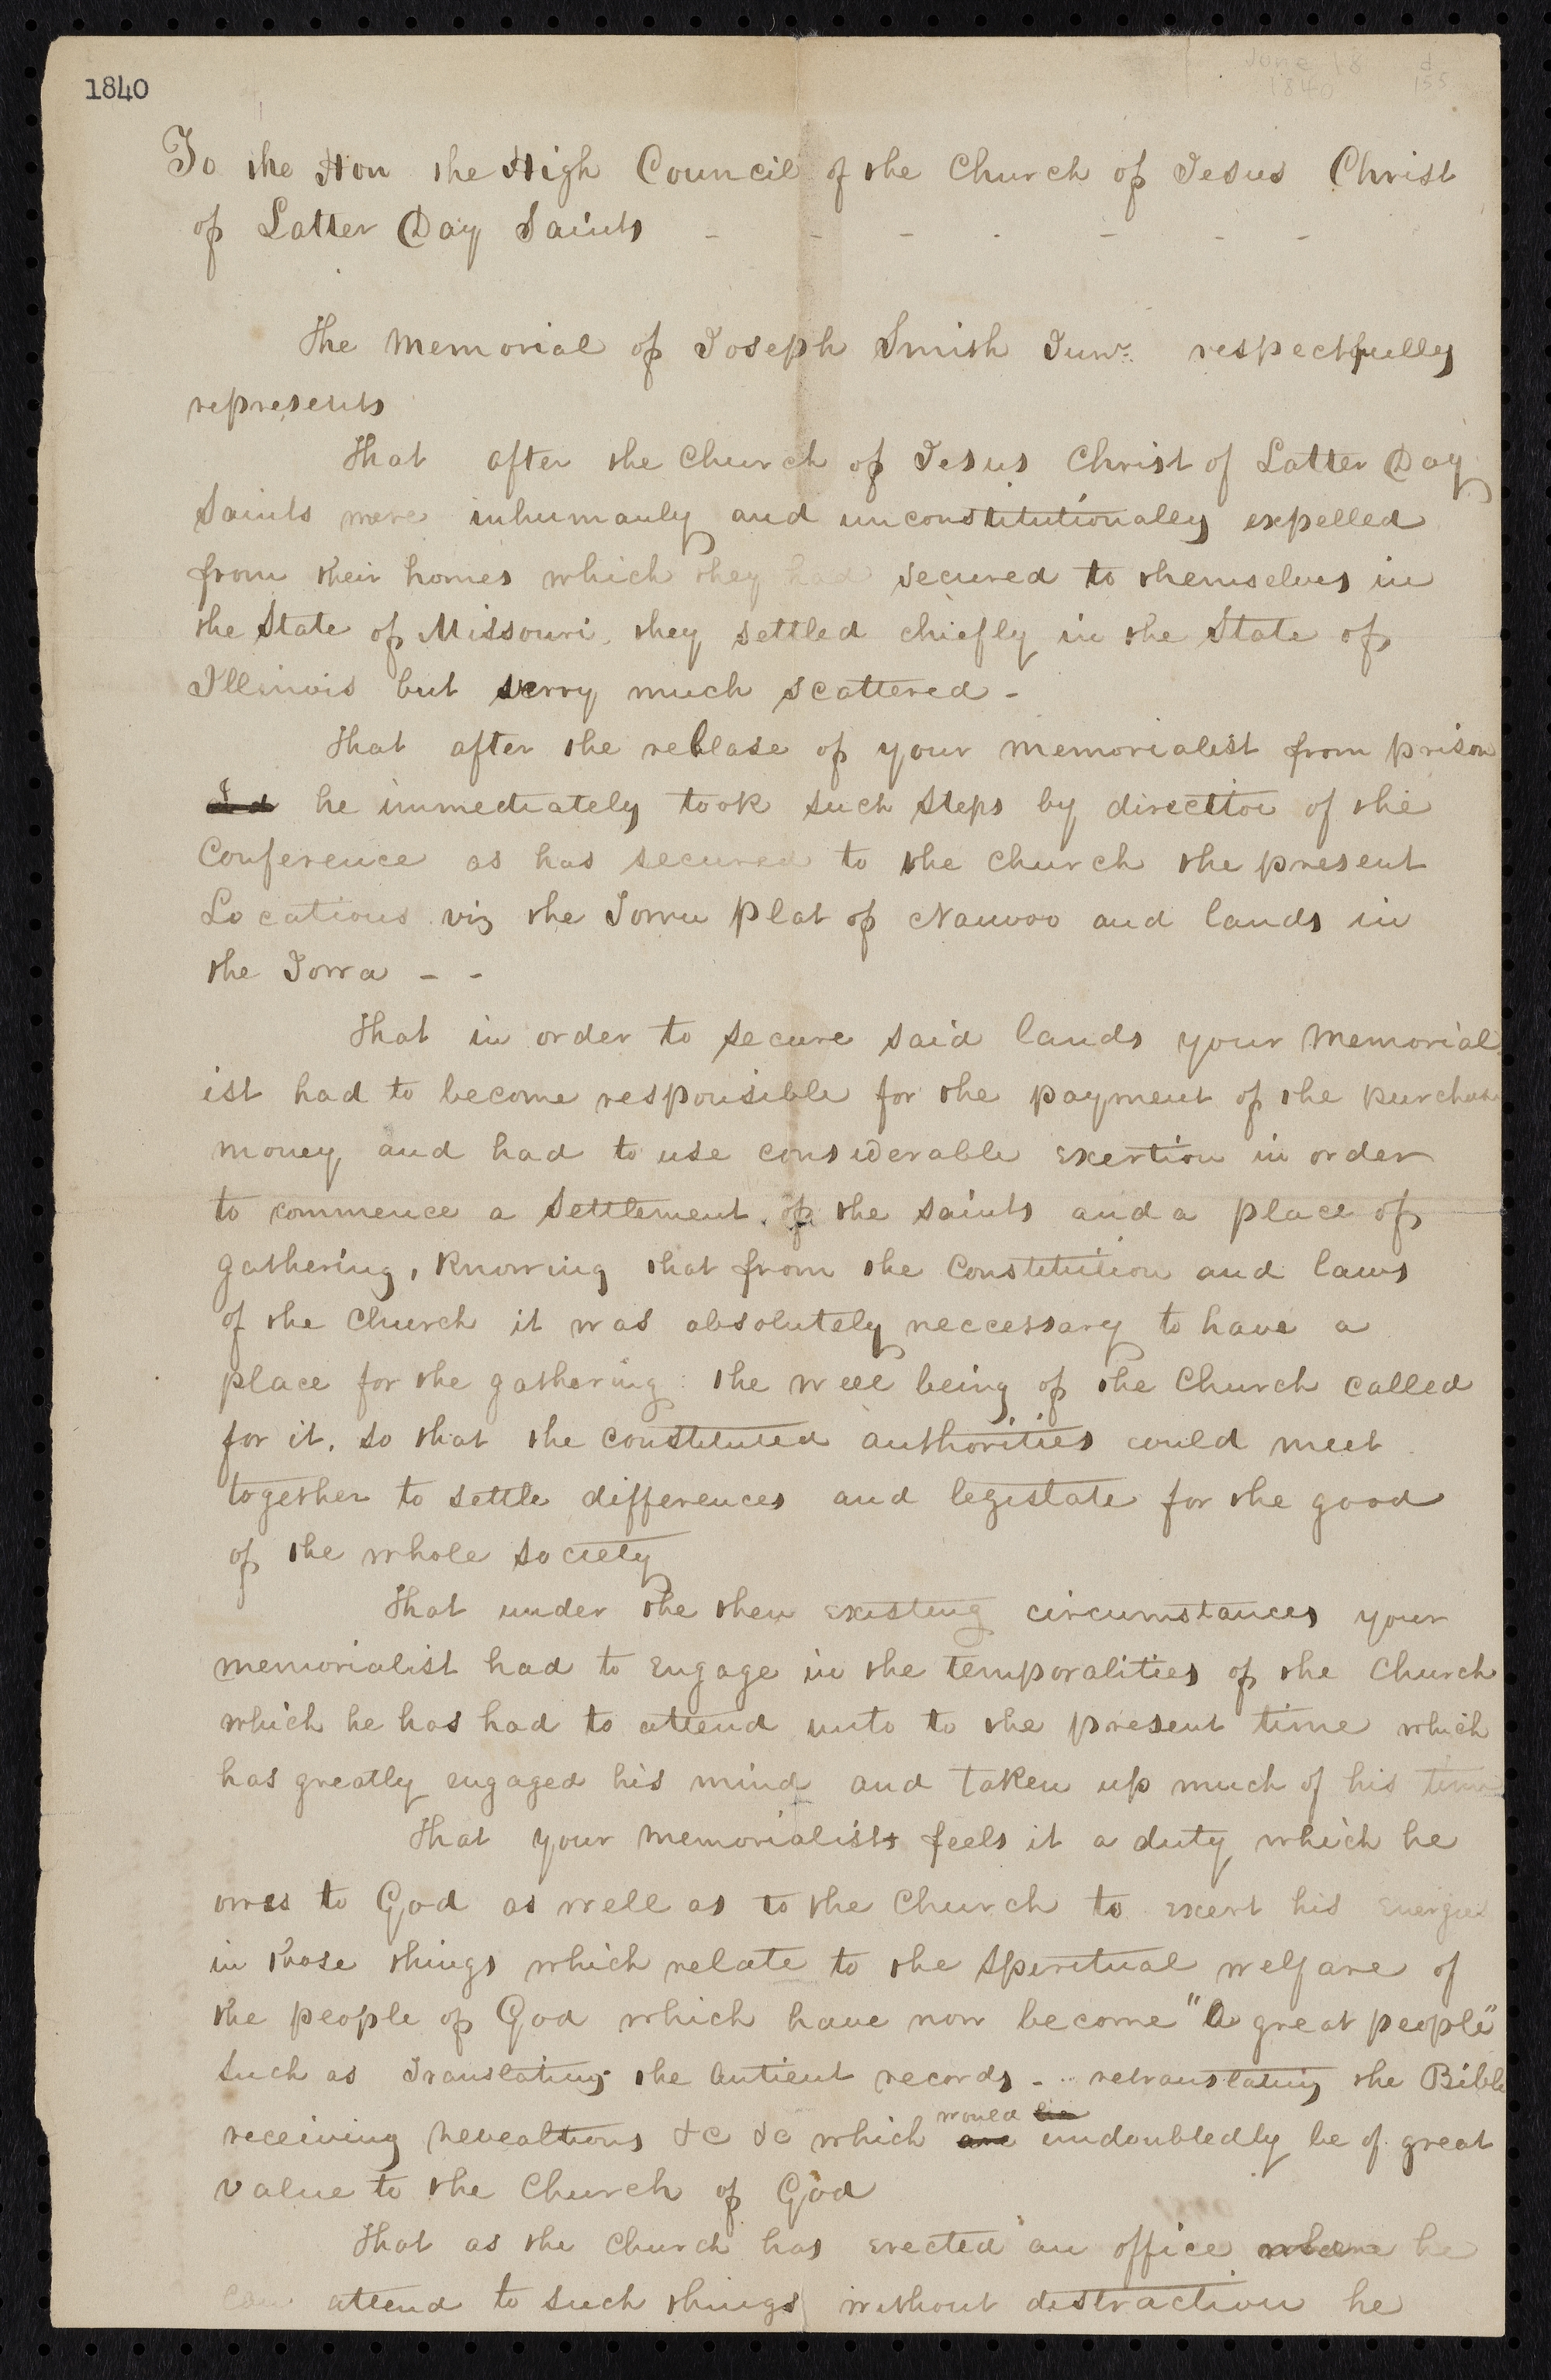 1840
June 18
1840
d
155
To the Hon the High Council of the Church of Jesus Christ
of Latter Day Saints - - - - - - -
The Memorial of Joseph Smith Junr. respectfully
represents
That after the Church of Jesus Christ of Latter Day
Saints were inhumanly and unconstitutionally expelled
from their homes which they had secured to themselves in
the State of Missouri, they settled chiefly in the State of
Illinois but verry much scattered -
That after the release of your memorialist from prison
he immediately took such steps by direction of the
Conference as has secured to the church the present
Locations viz the Town plat of Nauvoo and lands in
the Iowa - -
That in order to secure said lands your Memorial
ist had to become responsible for the payment of the purchase
money, and had to use considerable exertion in order
to commence a settlement of the saints and a place of
gathering, Knowing that from the Constitution and laws
of the Church it was absolutely neccessary to have a
place for the gathering: the well being of the Church called
for it, so that the constituted authorities could meet
together to settle differences and legistate for the good
of the whole society
That under the then existing circumstances your
memorialist had to engage in the temporalities of the Church
which he has had to attend unto to the present time which
has greatly engaged his mind and taken up much of his time
That your memorialist feels it a duty which he
owes to God as well as to the Church to exert his energies
in those things which relate to the spiritual welfare of
the people of God which have now become "A great people"
such as Translating the Antient records - .. retranslating the Bible
receiving revealtions &c &c which are would be undoubtedly be of great
value to the Church of God
That as the Church has erected an office where he
can attend to such things without distraction he